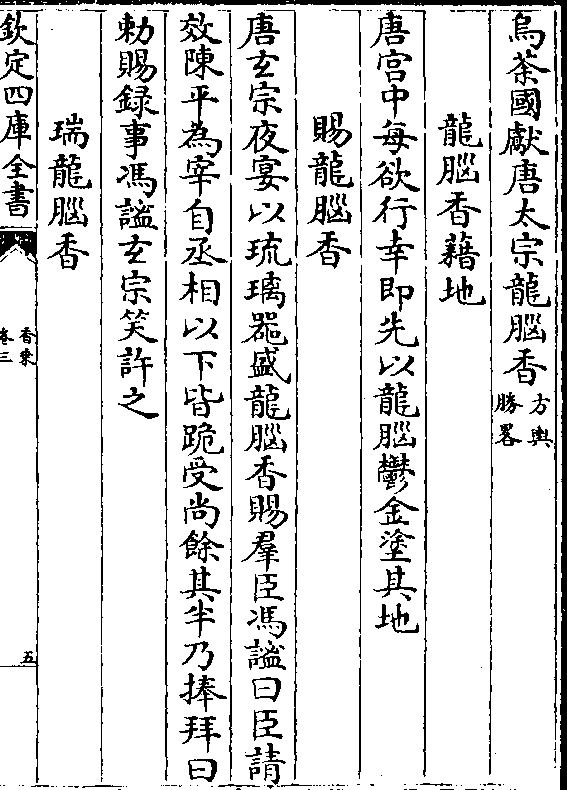 烏荼國獻唐太宗龍腦香方輿勝畧
龍腦香藉地
唐宮中每欲行幸即先以龍腦鬱金塗其地
賜龍腦香
唐玄宗夜宴以琉璃器盛龍腦香賜羣臣馮謐曰臣請
效陳平為宰自丞相以下皆跪受尚餘其半乃捧拜曰
勅賜録事馮謐玄宗笑許之
瑞龍腦香
欽定四庫全書
香乘
卷三
五